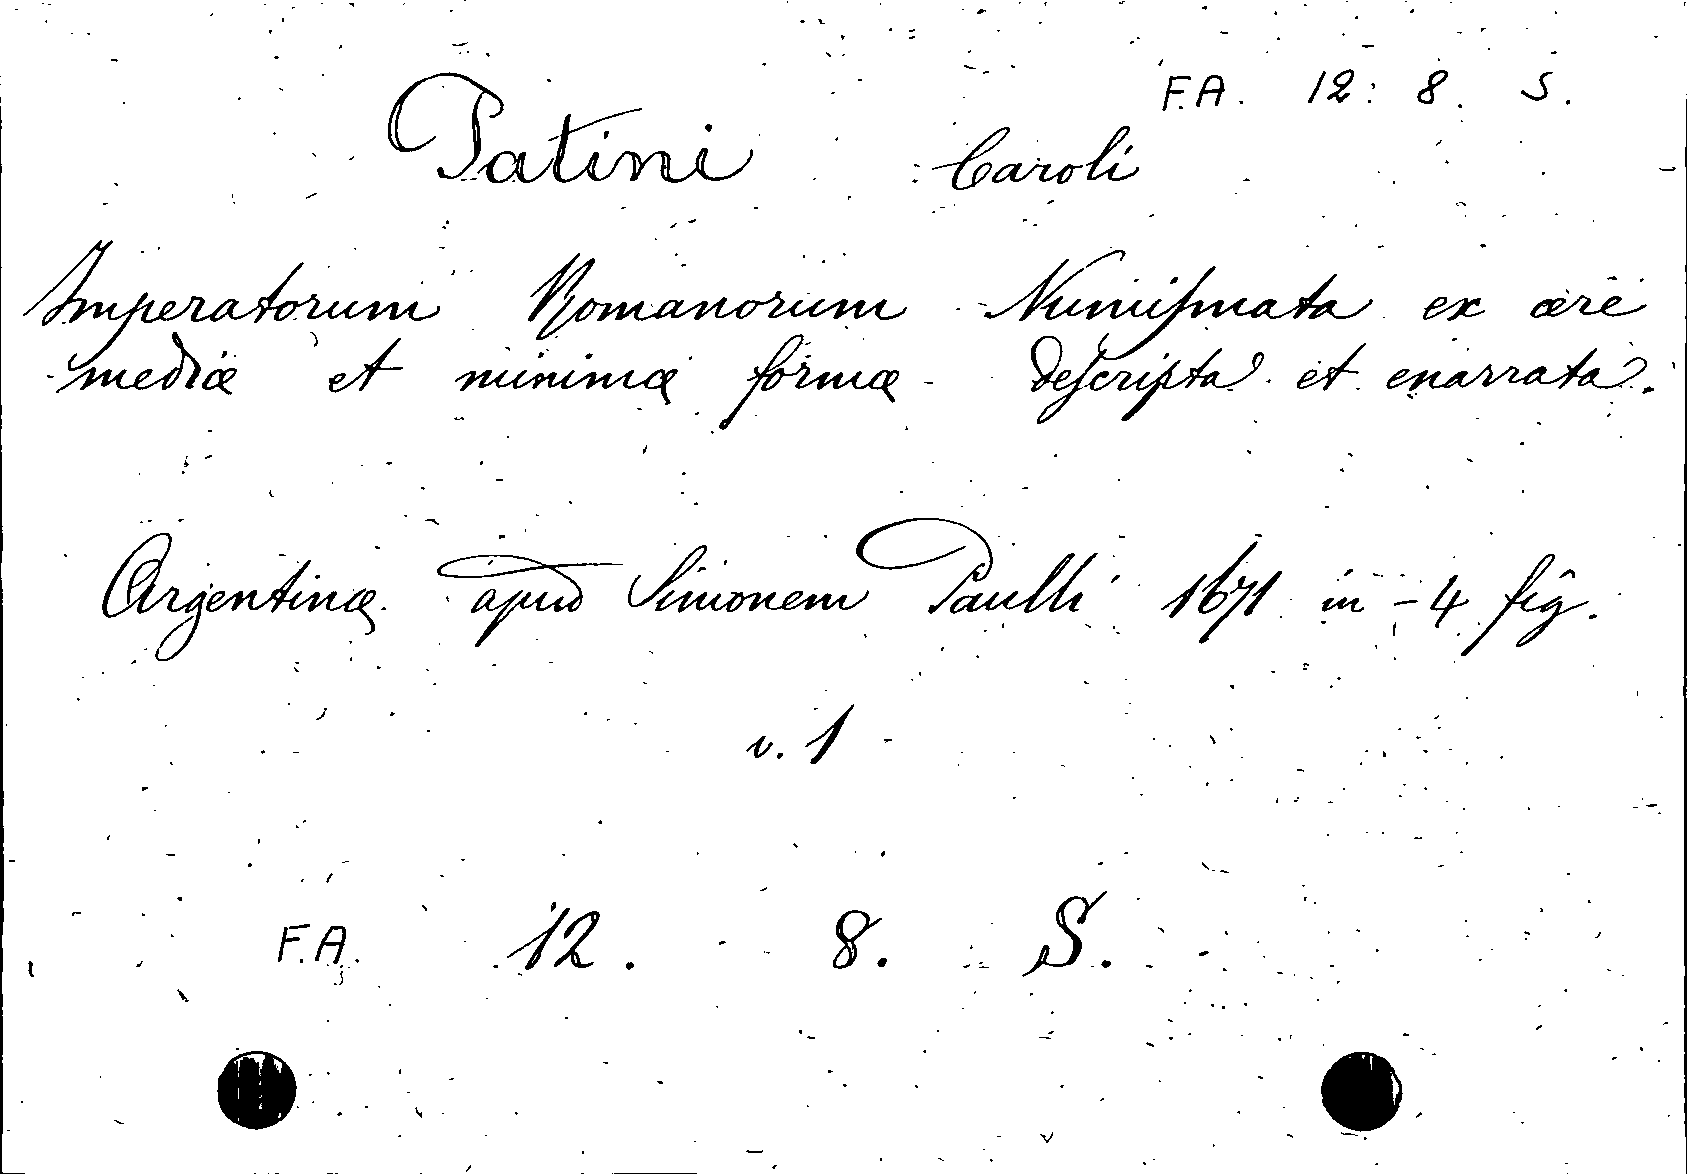 F.A. 12: 8. S.
Patini Caroli
Imperatorum Romanorum Numiſmata ex ære
mediæ et minimæ formæ deſcripta et enarrata.
Argentinæ apud Simonem Paulli 1671 in-4 fig.
v. 1
F.A. 12. 8. S.